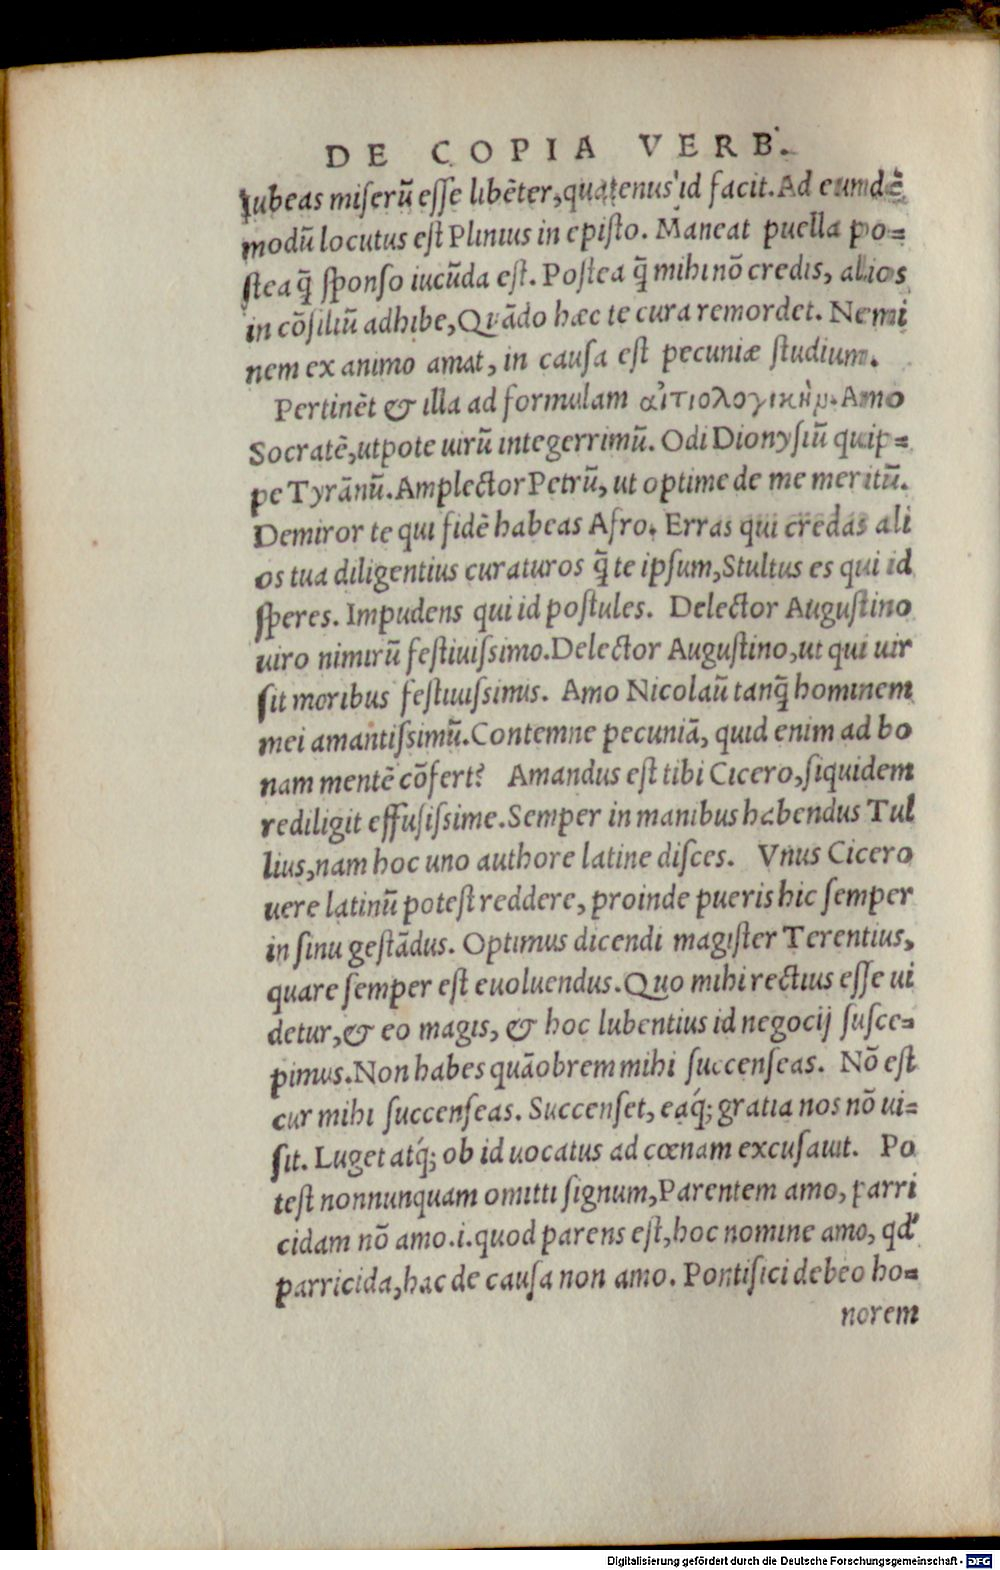 DE COPIA VERB.
Iubeas miserũ esse libẽter, quatenus id facit. Ad eumdẽ
modũ locutus est Plinius in episto. Maneat puella po=
stea q̃ sponso iucũda est. Postea q̃ mihi nõ credis, alios
in cõsiliũ adhibe, Quãdo hæc te cura remordet. Nemi
nem ex animo amat, in causa est pecuniæ studium.
Pertinẽt & illa ad formulam αἰτιολογικήν. Amo
Socratẽ, utpote uirũ integerrimũ. Odi Dionysiũ quip=
pe Tyrãnũ. Amplector Petrũ, ut optime de me meritũ.
Demiror te qui fidẽ habeas Afro. Erras qui credas ali
os tua diligentius curaturos q̃ te ipsum, Stultus es qui id
speres. Impudens qui id postules. Delector Augustino
uiro nimirũ festiuissimo. Delector Augustino, ut qui uir
sit moribus festiuissimis. Amo Nicolaũ tanq̃ hominem
mei amantissimũ. Contemne pecuniã, quid enim ad bo
nam mentẽ cõfert? Amandus est tibi Cicero, siquidem
rediligit effusissime. Semper in manibus habendus Tul
lius, nam hoc uno authore latine disces. Vnus Cicero
uere latinũ potest reddere, proinde pueris hic semper
in sinu gestãdus. Optimus dicendi magister Terentius,
quare semper est euoluendus. Quo mihi rectius esse ui
detur, & eo magis, & hoc lubentius id negocij susce=
pimus. Non habes quãobrem mihi succenseas. Nõ est
cur mihi succenseas. Succenset, eaq́; gratia nos nõ ui=
sit. Luget atq́; ob id uocatus ad cœnam excusauit. Po
test nonnunquam omitti signum, Parentem amo, parri
cidam nõ amo. i. quod parens est, hoc nomine amo, qd'
parricida, hac de causa non amo. Pontifici debeo ho=
norem
Digitalisierung gefördert durch die Deutsche Forschungsgemeinschaft - DFG